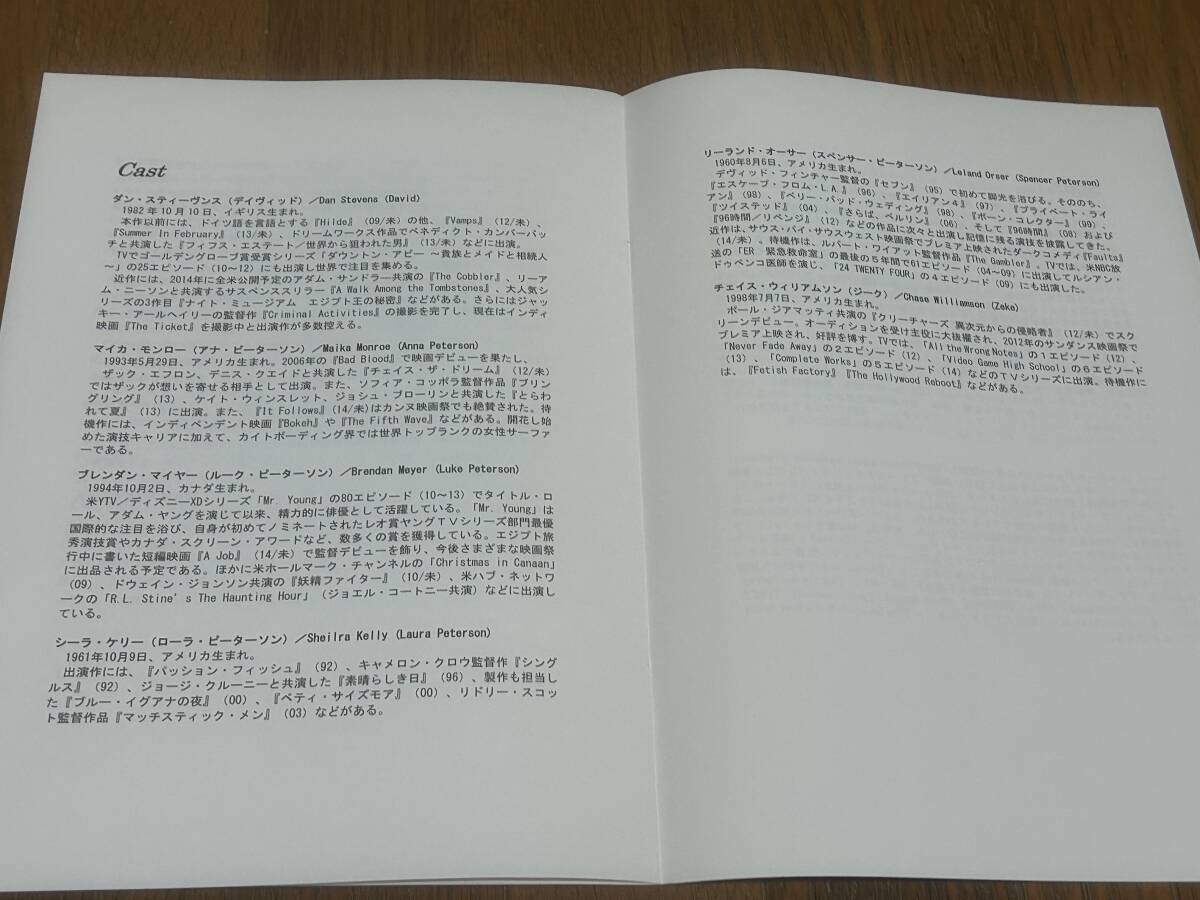 Cast
ダン・スティーヴンス（デイヴィッド）／Dan Stevens (David)
1982年10月10日、イギリス生まれ。
本作以前には、ドイツ語を言語とする『Hilde』（09/未）の他、『Vamps』（12/未）、
『Summer In February』（13/未）、ドリームワークス作品でベネディクト・カンバーバッ
チと共演した『フィフス・エステート／世界から狙われた男』（13/未）などに出演。
TVでゴールデングローブ賞受賞シリーズ「ダウントン・アビー ～貴族とメイドと相続人
～」の25エピソード（10～12）にも出演し世界で注目を集める。
近作には、2014年に全米公開予定のアダム・サンドラ―共演の『The Cobbler』、リーア
ム・ニーソンと共演するサスペンススリラー『A Walk Among the Tombstones』、大人気シ
リーズの3作目『ナイト・ミュージアム エジプト王の秘密』などがある。さらにはジャッ
キー・アールヘイリーの監督作『Criminal Activities』の撮影を完了し、現在はインディ
映画『The Ticket』を撮影中と出演作が多数控える。
マイカ・モンロー（アナ・ピーターソン）／Maika Monroe (Anna Peterson)
1993年5月29日、アメリカ生まれ。2006年の『Bad Blood』で映画デビューを果たし、
ザック・エフロン、デニス・クエイドと共演した『チェイス・ザ・ドリーム』（12/未）
ではザックが想いを寄せる相手として出演。また、ソフィア・コッポラ監督作品『ブリン
グリング』（13）、ケイト・ウィンスレット、ジョシュ・ブローリンと共演した『とらわ
れて夏』（13）に出演。また、『It Follows』(14/未)はカンヌ映画祭でも絶賛された。待
機作には、インディペンデント映画『Bokeh』や『The Fifth Wave』などがある。開花し始
めた演技キャリアに加えて、カイトボーディング界では世界トップランクの女性サーファ
ーである。
ブレンダン・マイヤー（ルーク・ピーターソン）／Brendan Meyer (Luke Peterson)
1994年10月2日、カナダ生まれ。
米YTV／ディズニーXDシリーズ「Mr. Young」の80エピソード（10～13）でタイトル・ロ
ール、アダム・ヤングを演じて以来、精力的に俳優として活躍している。「Mr. Young」は
国際的な注目を浴び、自身が初めてノミネートされたレオ賞ヤングＴＶシリーズ部門最優
秀演技賞やカナダ・スクリーン・アワードなど、数多くの賞を獲得している。エジプト旅
行中に書いた短編映画『A Job』（14/未）で監督デビューを飾り、今後さまざまな映画祭
に出品される予定である。ほかに米ホールマーク・チャンネルの「Christmas in Canaan」
（09）、ドウェイン・ジョンソン共演の『妖精ファイター』（10/未）、米ハブ・ネットワ
ークの「R.L. Stine's The Haunting Hour」（ジョエル・コートニー共演）などに出演し
ている。
シーラ・ケリー（ローラ・ピーターソン）／Sheilra Kelly (Laura Peterson)
1961年10月9日、アメリカ生まれ。
出演作には、『パッション・フィッシュ』（92）、キャメロン・クロウ監督作『シング
ルス』（92）、ジョージ・クルーニーと共演した『素晴らしき日』（96）、製作も担当し
た『ブルー・イグアナの夜』（00）、『ベティ・サイズモア』（00）、リドリー・スコッ
ト監督作品『マッチスティック・メン』（03）などがある。
リーランド・オーサー（スペンサー・ピーターソン）／Leland Orser (Spencer Peterson)
1960年8月6日、アメリカ生まれ。
デヴィッド・フィンチャー監督の『セブン』（95）で初めて脚光を浴びる。そののち、
『エスケープ・フロム・L.A.』（96）、『エイリアン４』（97）、『プライベート・ライ
アン』（98）、『ベリー・バッド・ウェディング』（98）、『ボーン・コレクター』（99）、
『ツイステッド』（04）、『さらば、ベルリン』（06）、そして『96時間』（08）および
『96時間／リベンジ』（12）などの作品に次々と出演し記憶に残る演技を披露してきた。
近作は、サウス・バイ・サウスウェスト映画祭でプレミア上映されたダークコメディ『Faults』
（14/未）。待機作は、ルパート・ワイアット監督作品『The Gambler』。TVでは、米NBC放
送の「ER 緊急救命室」の最後の５年間で61エピソード（04～09）に出演してルシアン・
ドゥベンコ医師を演じ、「24 TWENTY FOUR」の４エピソード（09）にも出演した。
チェイス・ウィリアムソン（ジーク）／Chase Williamson (Zeke)
1998年7月7日、アメリカ生まれ。
ポール・ジアマッティ共演の『クリーチャーズ 異次元からの侵略者』（12/未）でスク
リーンデビュー。オーディションを受け主役に大抜擢され、2012年のサンダンス映画祭で
プレミア上映され、好評を博す。TVでは、「All the Wrong Notes」の１エピソード（12）、
「Never Fade Away」の２エピソード（12）、「Video Game High School」の６エピソード
（13）、「Complete Works」の５エピソード（14）などのＴＶシリーズに出演。待機作に
は、『Fetish Factory』『The Hollywood Reboot』などがある。